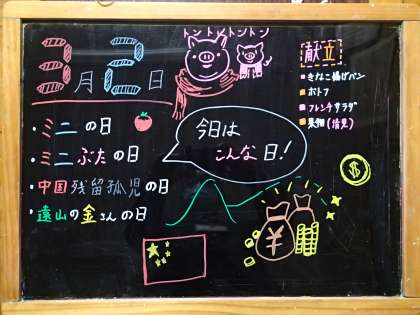 3月2日
トントトントン
献立
きなこ揚げパン
ポトフ
フレンチサラダ
果物(清見)
・ミニの日
・ミニぶたの日
・中国残留孤児の日
・遠山の金さんの日
今日は
こんな日!
$
¥